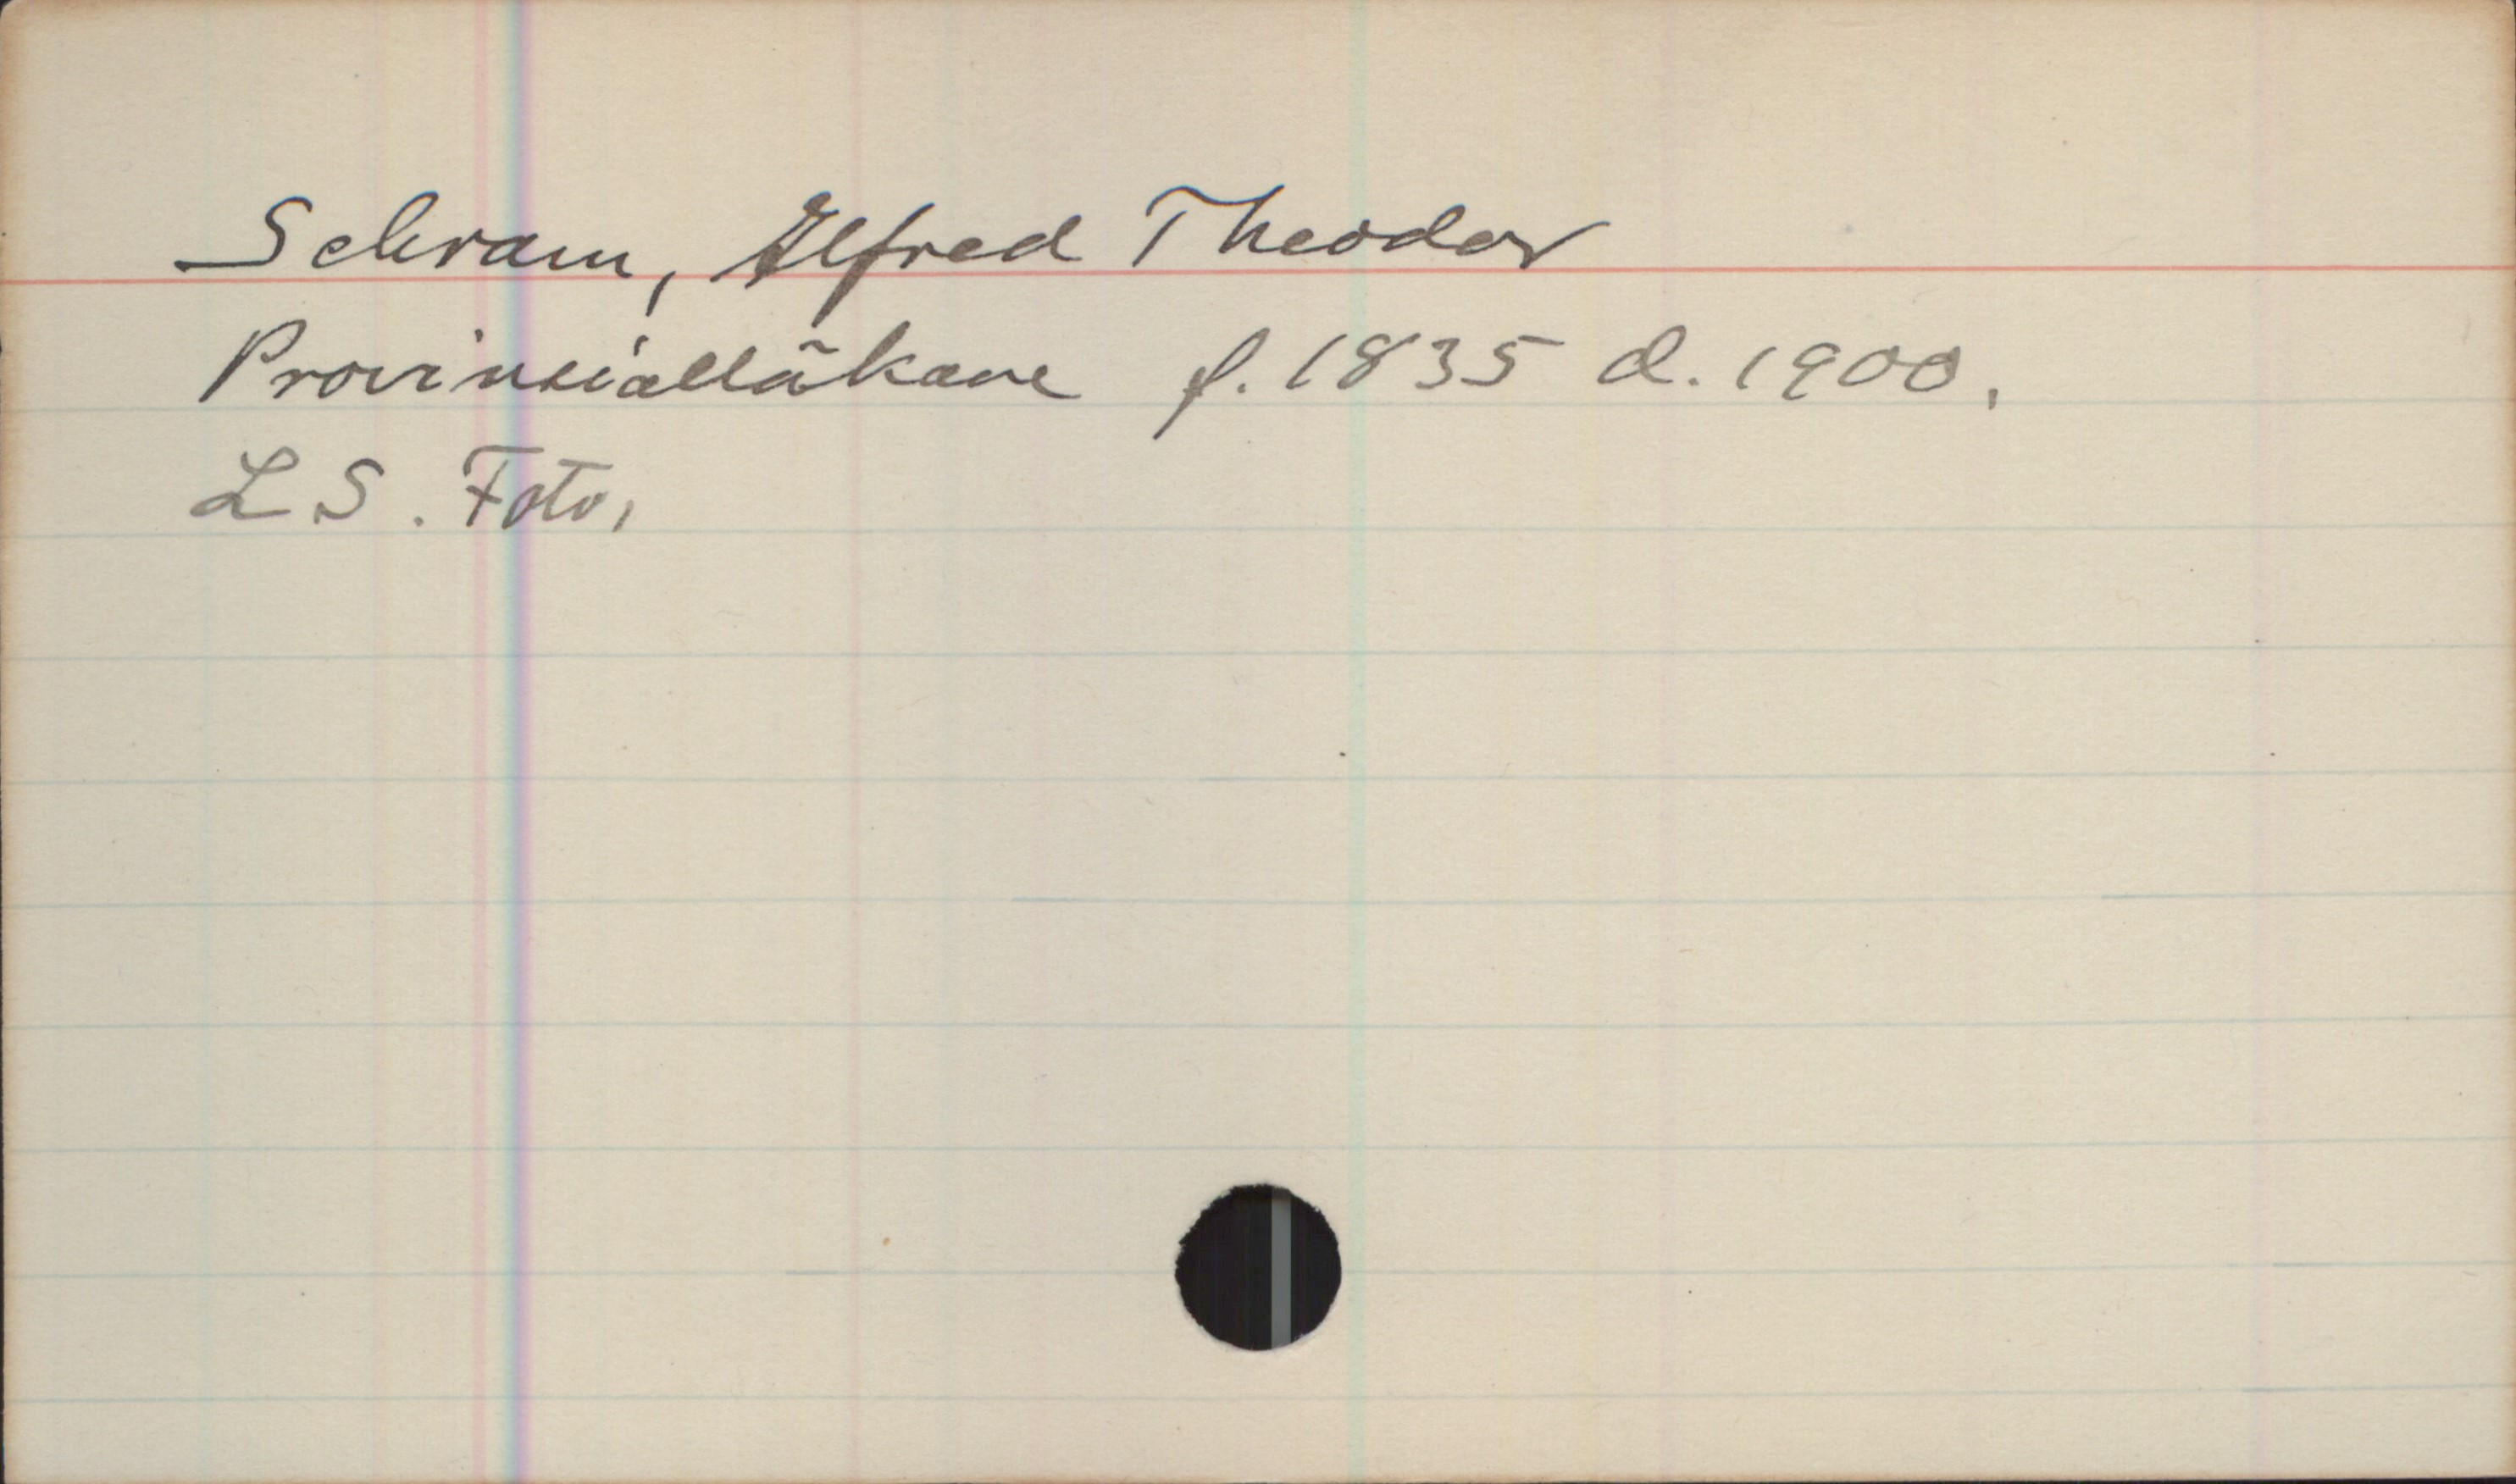 Schram, Alfred Theodor
Provinsialläkare f. 1835 d. 1900.
L S. Foto,